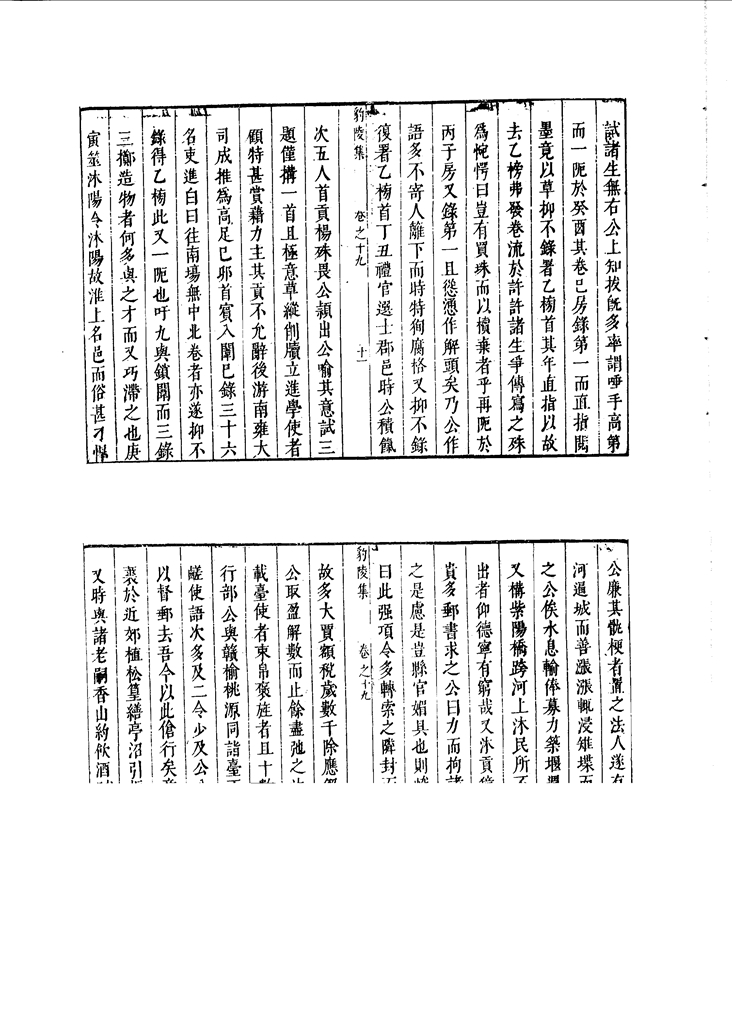 試諸生無右公上知拔旣多率謂唾手高第
而一阨於癸酉其卷已房錄第一而直指閱
墨竟以草抑不錄署乙榜首其年直指以故
去乙榜弗發卷流於許許諸生爭傳寫之殊
爲惋愕曰豈有買珠而以櫝棄者乎再阨於
丙子房又錄第一且慫憑作解頭矣乃公作
語多不寄人籬下而時特狥腐格又抑不錄
復署乙榜首丁丑禮官選士郡邑時公積餼
豹陵集 卷之十九 十一
次五人首貢楊殊畏公頴出公喻其意試三
題僅搆一首且極意草縱削牘立進學使者
顧特甚賞藉力主其貢不允辭後游南雍大
司成推爲高足已卯首賓入闈已錄三十六
名吏進白曰往南塲無中北卷者亦遂抑不
錄得乙榜此又一阨也吁九與鎖闈而三錄
三擲造物者何多與之才而又巧滯之也庚
寅筮沭陽令沭陽故淮上名邑而俗甚刁悍
公廉其骩梗者置之法人遂有
河逼城而善漲漲輒浸雉堞而
之公俟水息輸俸募力築堰
又構紫陽橋跨河上沭民所不
出者仰德寧有窮哉又沭貢
貴多郵書求之公曰力而拘諸
之是慮是豈縣官媚具也則
曰此强項令多轉索之隣封
豹陵集 卷之十九
故多大賈額稅歲數千除應
公取盈解數而止餘盡弛之
載臺使者束帛襃旌者且十數
行部公與贛榆桃源同詣臺
鹺使語次多及二令少及公
以督郵去吾今以此傖行矣
裘於近郊植松篁繕亭沼引
又時與諸老嗣香山約飮酒